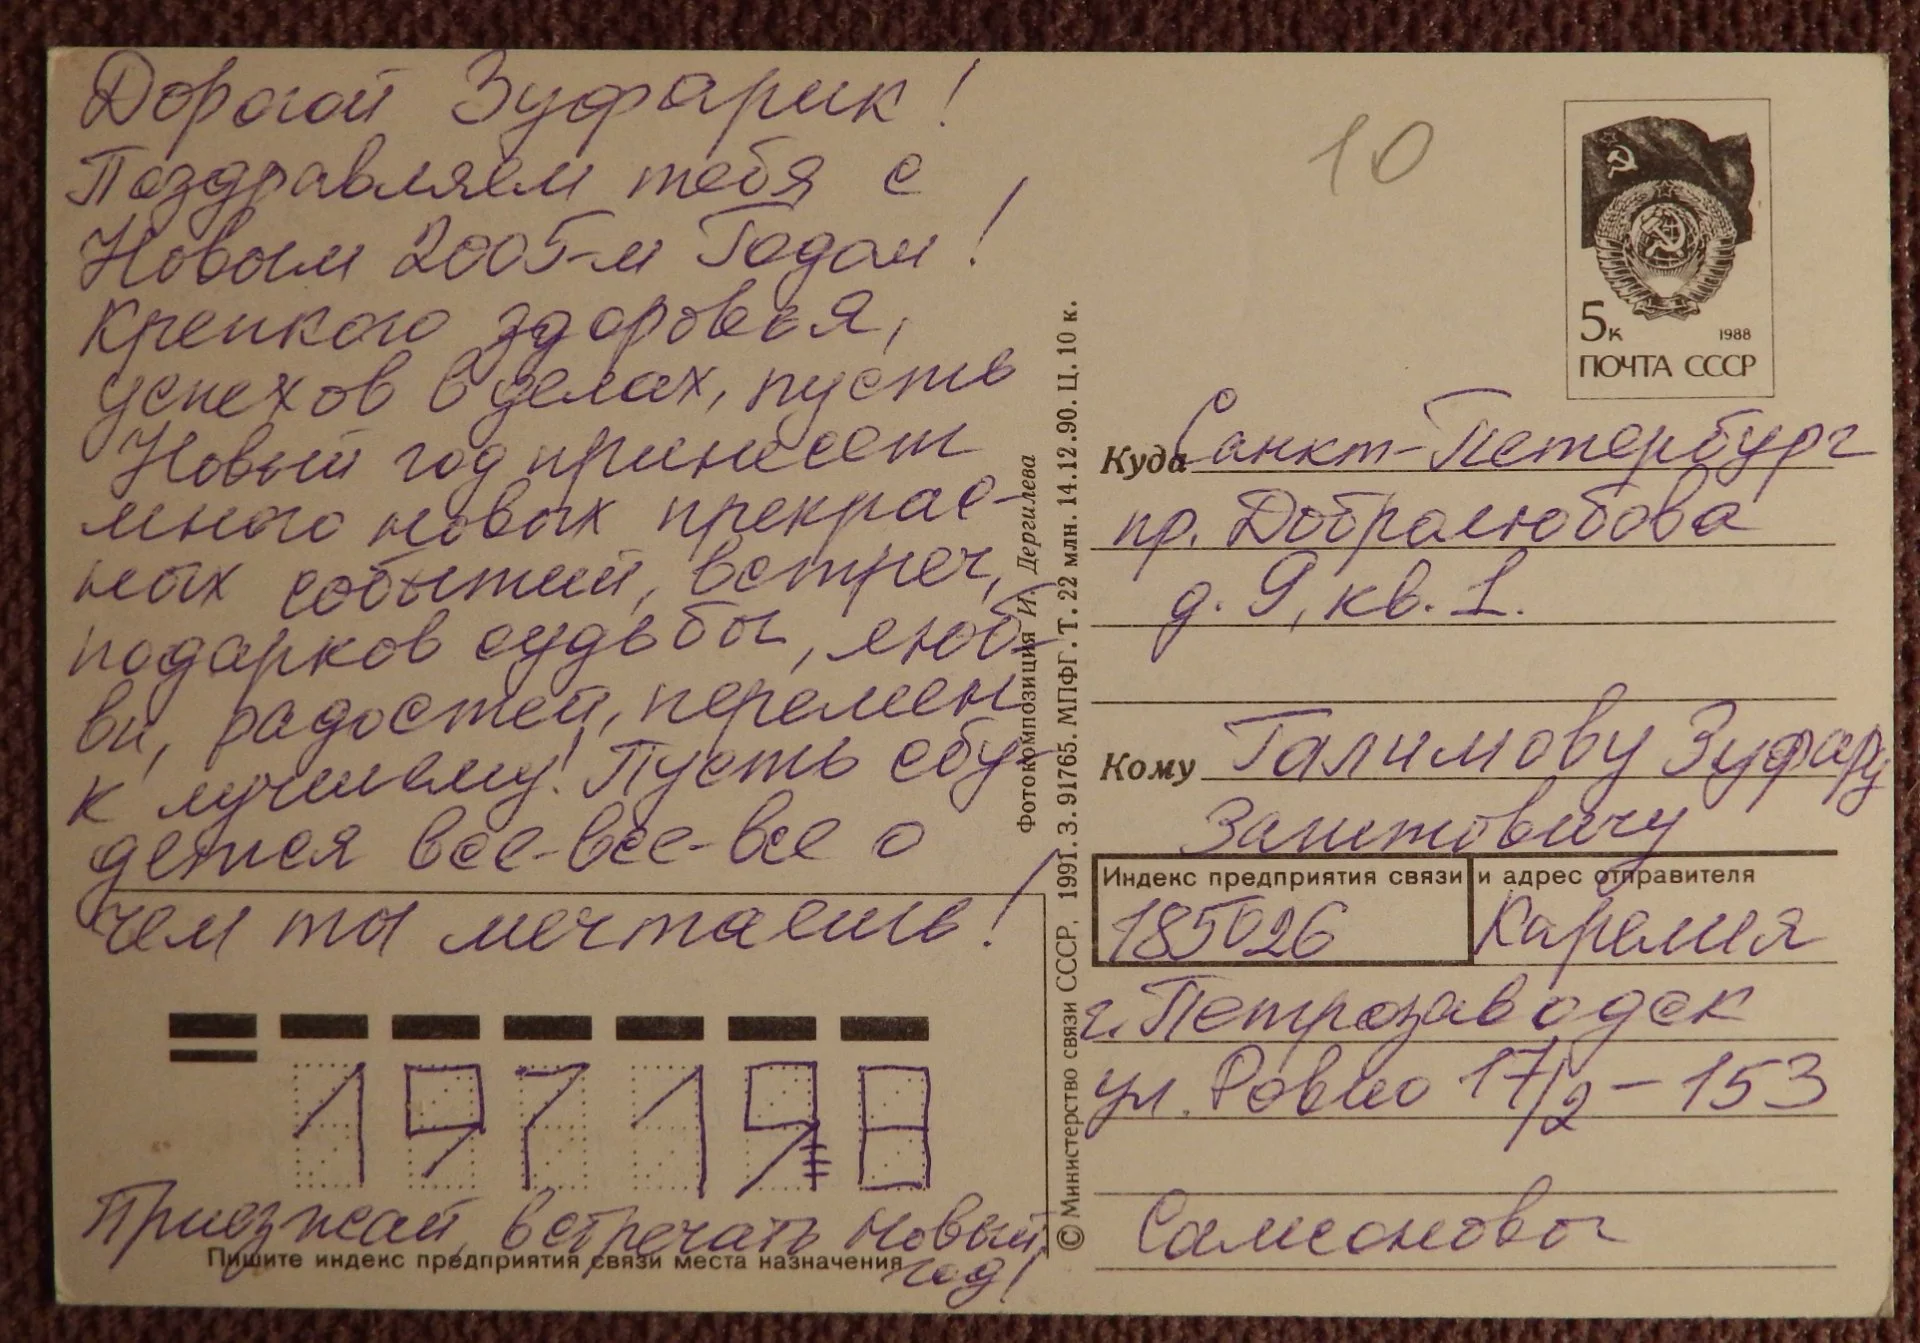 Дорогой Зуфарик!
Поздравляем тебя с
Новым 2005-м Годом!
Крепкого здоровья,
успехов в делах, пусть
Новый год принесет
много новых прекрас-
ных событий, встреч,
подарков судьбы, люб-
ви, радостей, перемен
к лучшему! Пусть сбу-
дется все-все-все о
чем ты мечтаешь!
197198
Приезжай, встречать Новый
год!
Пишите индекс предприятия связи места назначения
Фотокомпозиция И. Дергилева
© Министерство связи СССР. 1991. З. 91765. МПФГ. Т. 22 млн. 14.12.90. Ц. 10 к.
10
5к 1988
ПОЧТА СССР
Куда Санкт-Петербург
пр. Добролюбова
д. 9, кв. 1.
Кому Галимову Зуфару
Заитовичу
Индекс предприятия связи и адрес отправителя
185026 Карелия
г. Петрозаводск
ул. Ровио 17/2 - 153
Самсоновы